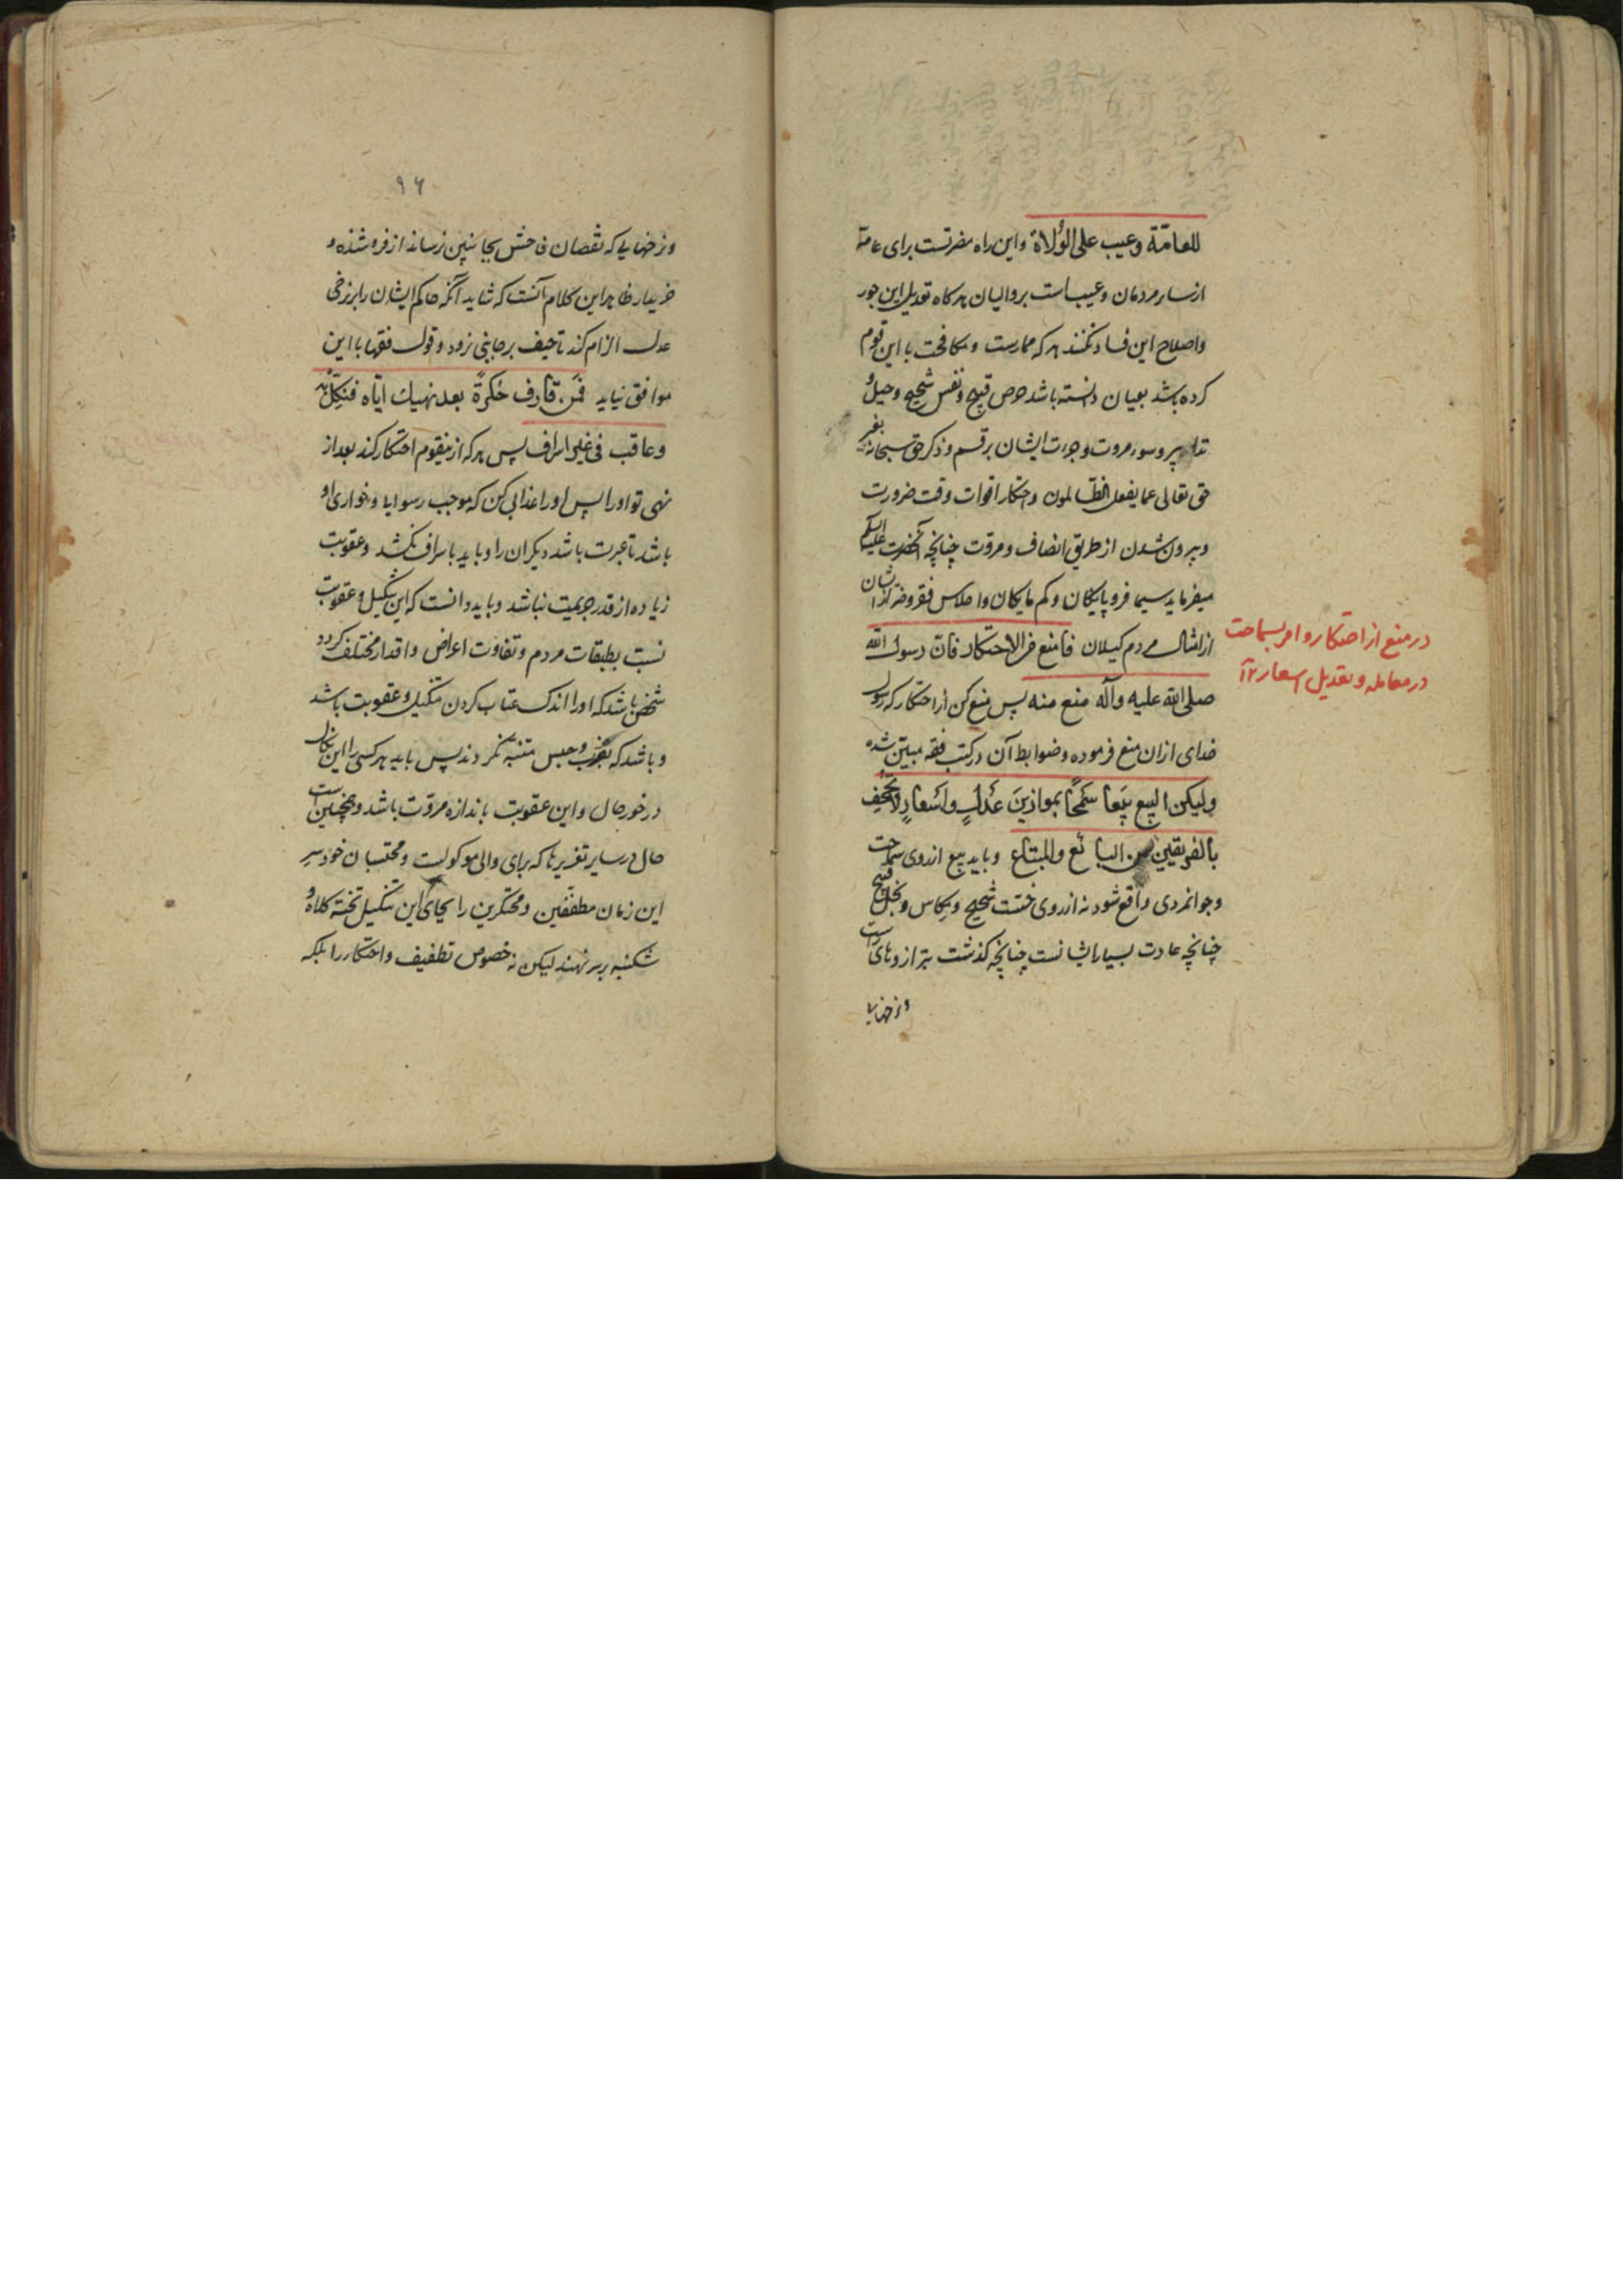 للعامّة وعیب علی الوُلاة و این راه مضرتست برای عامّة
از سایر مردمان و عیب است بر والیان هر کاه تعدیل این جور
و اصلاح این فساد نکنند هر که ممارست و مکافحت با این قوم
کرده باشد بعیان دانسته باشد حرص قبیح و نفس شحیح و حیل و
تدابیر و سوء مروت و جرءت ایشان بر قسم و ذکر حق سبحانه بغیر
حق تعالی عما یفعل الظالمون و احتکار اقوات وقت ضرورت
و بیرون شدن از طریق انصاف و مروّت چنانچه آنحضرت علیه السلام
میفرماید سیما فروپایکان و کم مایکان و
از امثال مردم کیلان فامنع من الاحتکار فانّ رسول الله
صلی الله علیه وآله منع منه پس منع کن از احتکار که رسول
خدای ازان منع فرموده و ضوابط آن در کتب فقه مبیّن شده
ولیکن البیع بَیعا سَمْحًا بموازینَ عَدلٍ و اَسْعارٍ لا تُجْحِف
بالفریقین من البائع والمبتاع و باید بیع از روی سماحت
و جوانمردی واقع شود نه از روی خسّت شحیح و مکاس و بخل قبیح
چنانچه عادت بسیار ایشانست چنانچه کذشت بترازوهای راست
و نرخهایی
در منع از احتکار و امر بسماحت
در معامله و تعدیل اسعار ۱۲
۹۶
و نرخهایی که نقصان فاحش بجانبین نرساند از فروشنده و
خریدار ظاهر این کلام آنست که شاید آنکه حاکم ایشان را بر نرخی
عدل الزام کند تا حیف بر جانبی نرود و قول فقها با این
موافق نیاید فمَن قارف حُکرةً بعد نهیك ایّاه فنکّل به
وعاقب فی غیر اسراف پس هر که ازینقوم احتکار کند بعد از
نهی تو او را پس او را عذابی کن که موجب رسوایی و خواری او
باشد تا عبرت باشد دیکران را و باید باسراف نکشد و عقوبت
زیاده از قدر جریمت نباشد و باید دانست که این تنکیل و عقوبت
نسبت بطبقات مردم و تفاوت اعراض و اقدار مختلف کردد
شخص باشد که او را اندک عتاب کردن تنکیل و عقوبت باشد
و باشد که بضرب و حبس متنبّه نکردند پس باید هر کسی را این نکال
در خور حال و این عقوبت باندازه مروّت باشد و همچنین است
حال در سایر تعزیرها که برای والی موکولست و محتسبان خود سر
این زمان مطفّفین و محتکرین را بجای این تنکیل تخته کلاه و
شکنبه بر سر نهند لیکن نه خصوص تطفیف و احتکار را بلکه